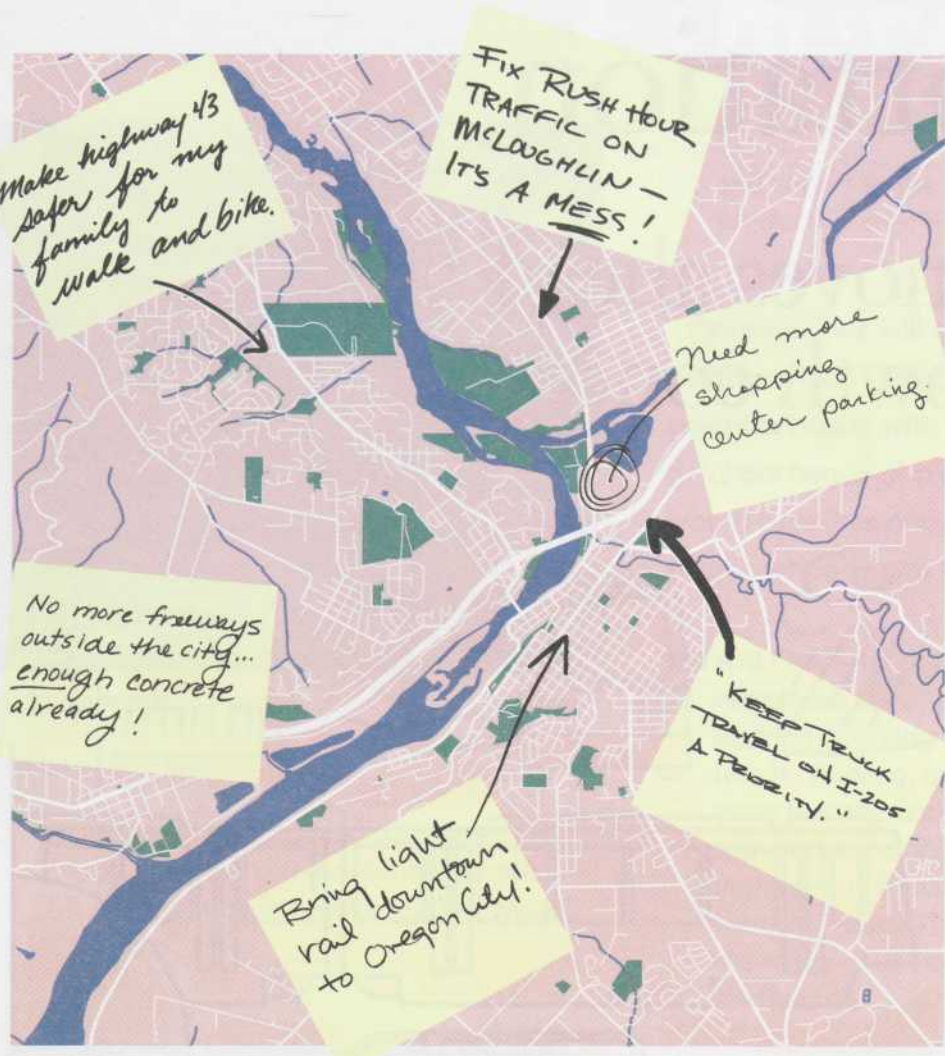 Make highway 43
safer for my
family to
walk and bike.
Fix RUSH HOUR
TRAFFIC ON
McLOUGHLIN —
IT'S A MESS!
Need more
shopping
center parking.
No more freeways
outside the city...
enough concrete
already!
"KEEP TRUCK
TRAVEL ON I-205
A PRIORITY."
Bring light
rail downtown
to Oregon City!